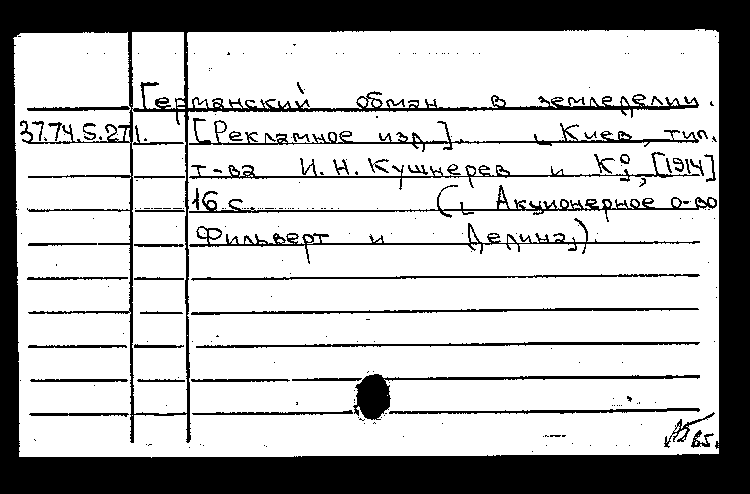 Германский обман в земледелии.
37.74.5.271. [Рекламное изд.]. Киев, тип.
т-ва И. Н. Кушнерев и К°, [1914]
16 с. (Акционерное о-во
Фильверт и Дедина).